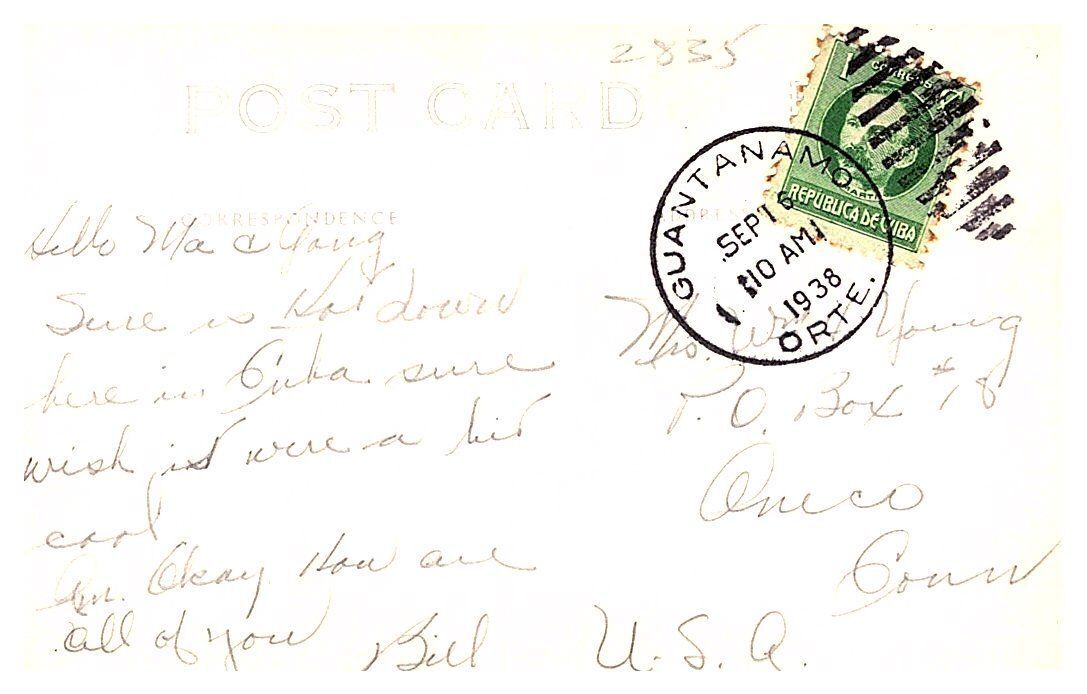 2835
POST CARD
1 CORREOS
MARTI
REPUBLICA DE CUBA
GUANTANAMO
SEPT 6
10 AM
1938
ORTE.
CORRESPONDENCE
Hello Ma &
Sure is Hot down
here in Cuba sure
wish it were a bit
cool
Am Okay How are
all of you
Bill
Mrs. Young
P. O. Box #18
Oneco
Conn
U. S. A.